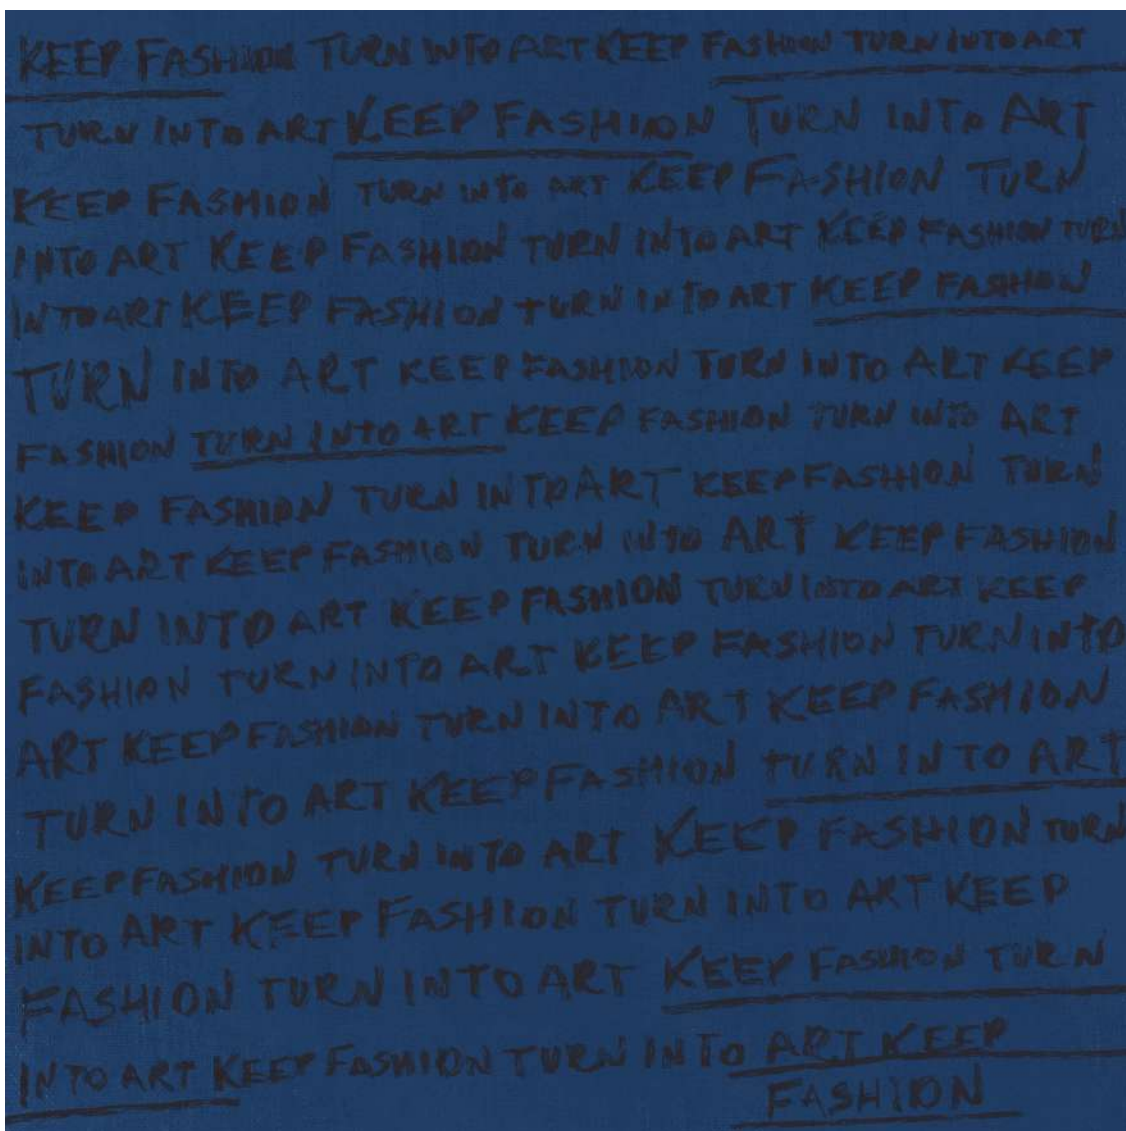 KEEP FASHION TURN INTO ART KEEP FASHION TURN INTO ART
TURN INTO ART KEEP FASHION TURN INTO ART
KEEP FASHION TURN INTO ART KEEP FASHION TURN
INTO ART KEEP FASHION TURN INTO ART KEEP FASHION TURN
INTO ART KEEP FASHION TURN INTO ART KEEP FASHION
TURN INTO ART KEEP FASHION TURN INTO ART KEEP
FASHION TURN INTO ART KEEP FASHION TURN INTO ART
KEEP FASHION TURN INTO ART KEEP FASHION TURN
INTO ART KEEP FASHION TURN INTO ART KEEP FASHION
TURN INTO ART KEEP FASHION TURN INTO ART KEEP
FASHION TURN INTO ART KEEP FASHION TURN INTO
ART KEEP FASHION TURN INTO ART KEEP FASHION
TURN INTO ART KEEP FASHION TURN INTO ART
KEEP FASHION TURN INTO ART KEEP FASHION TURN
INTO ART KEEP FASHION TURN INTO ART KEEP
FASHION TURN INTO ART KEEP FASHION TURN
INTO ART KEEP FASHION TURN INTO ART KEEP
FASHION